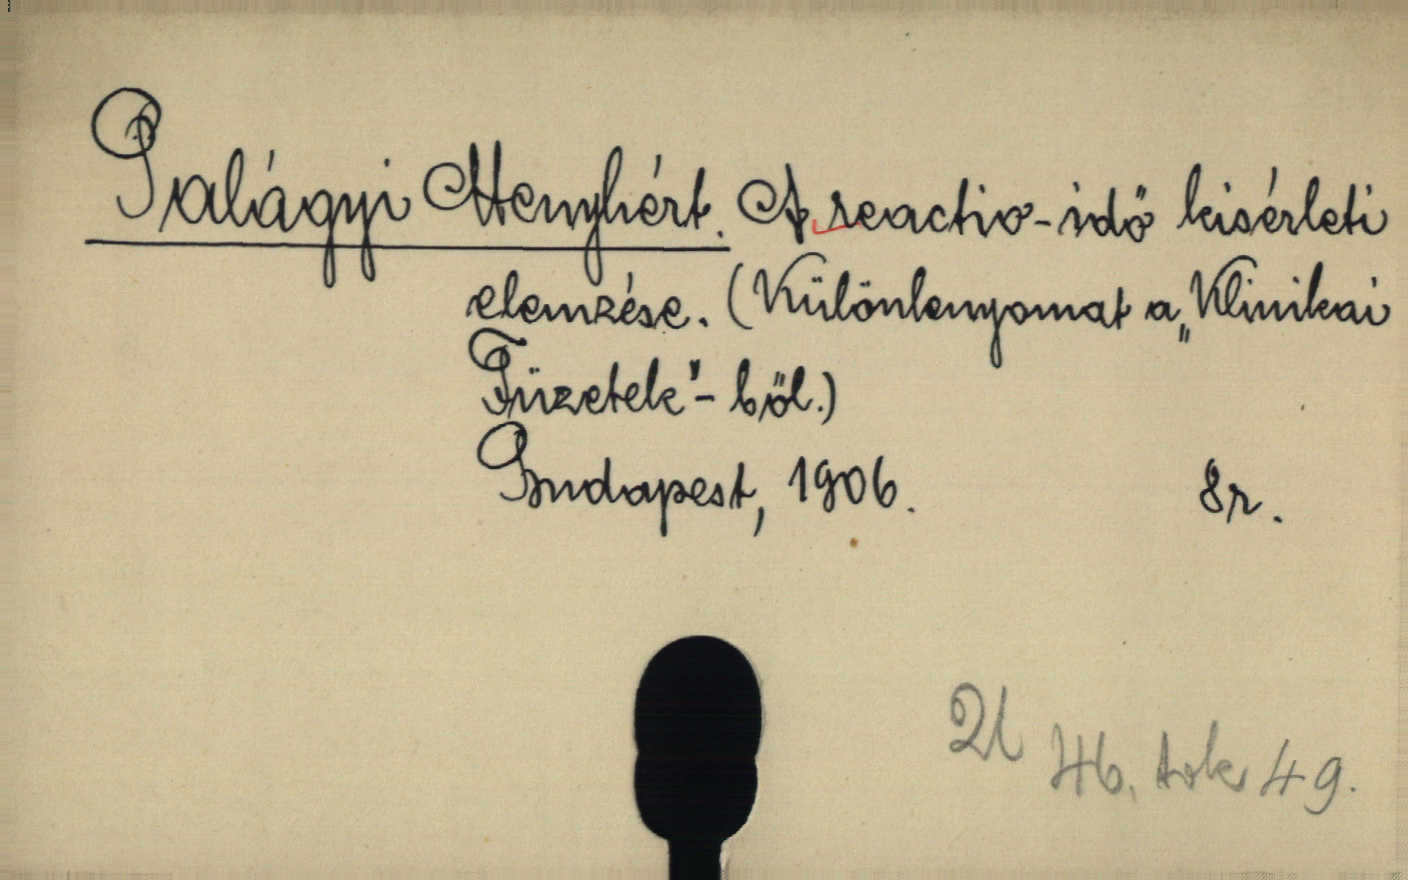 Palágyi Menyhért. A reactio-idő kisérleti
elemzése. (Különlenyomat a „Klinikai
Füzetek"-ből.)
Budapest, 1906. 8r.
tok 49.